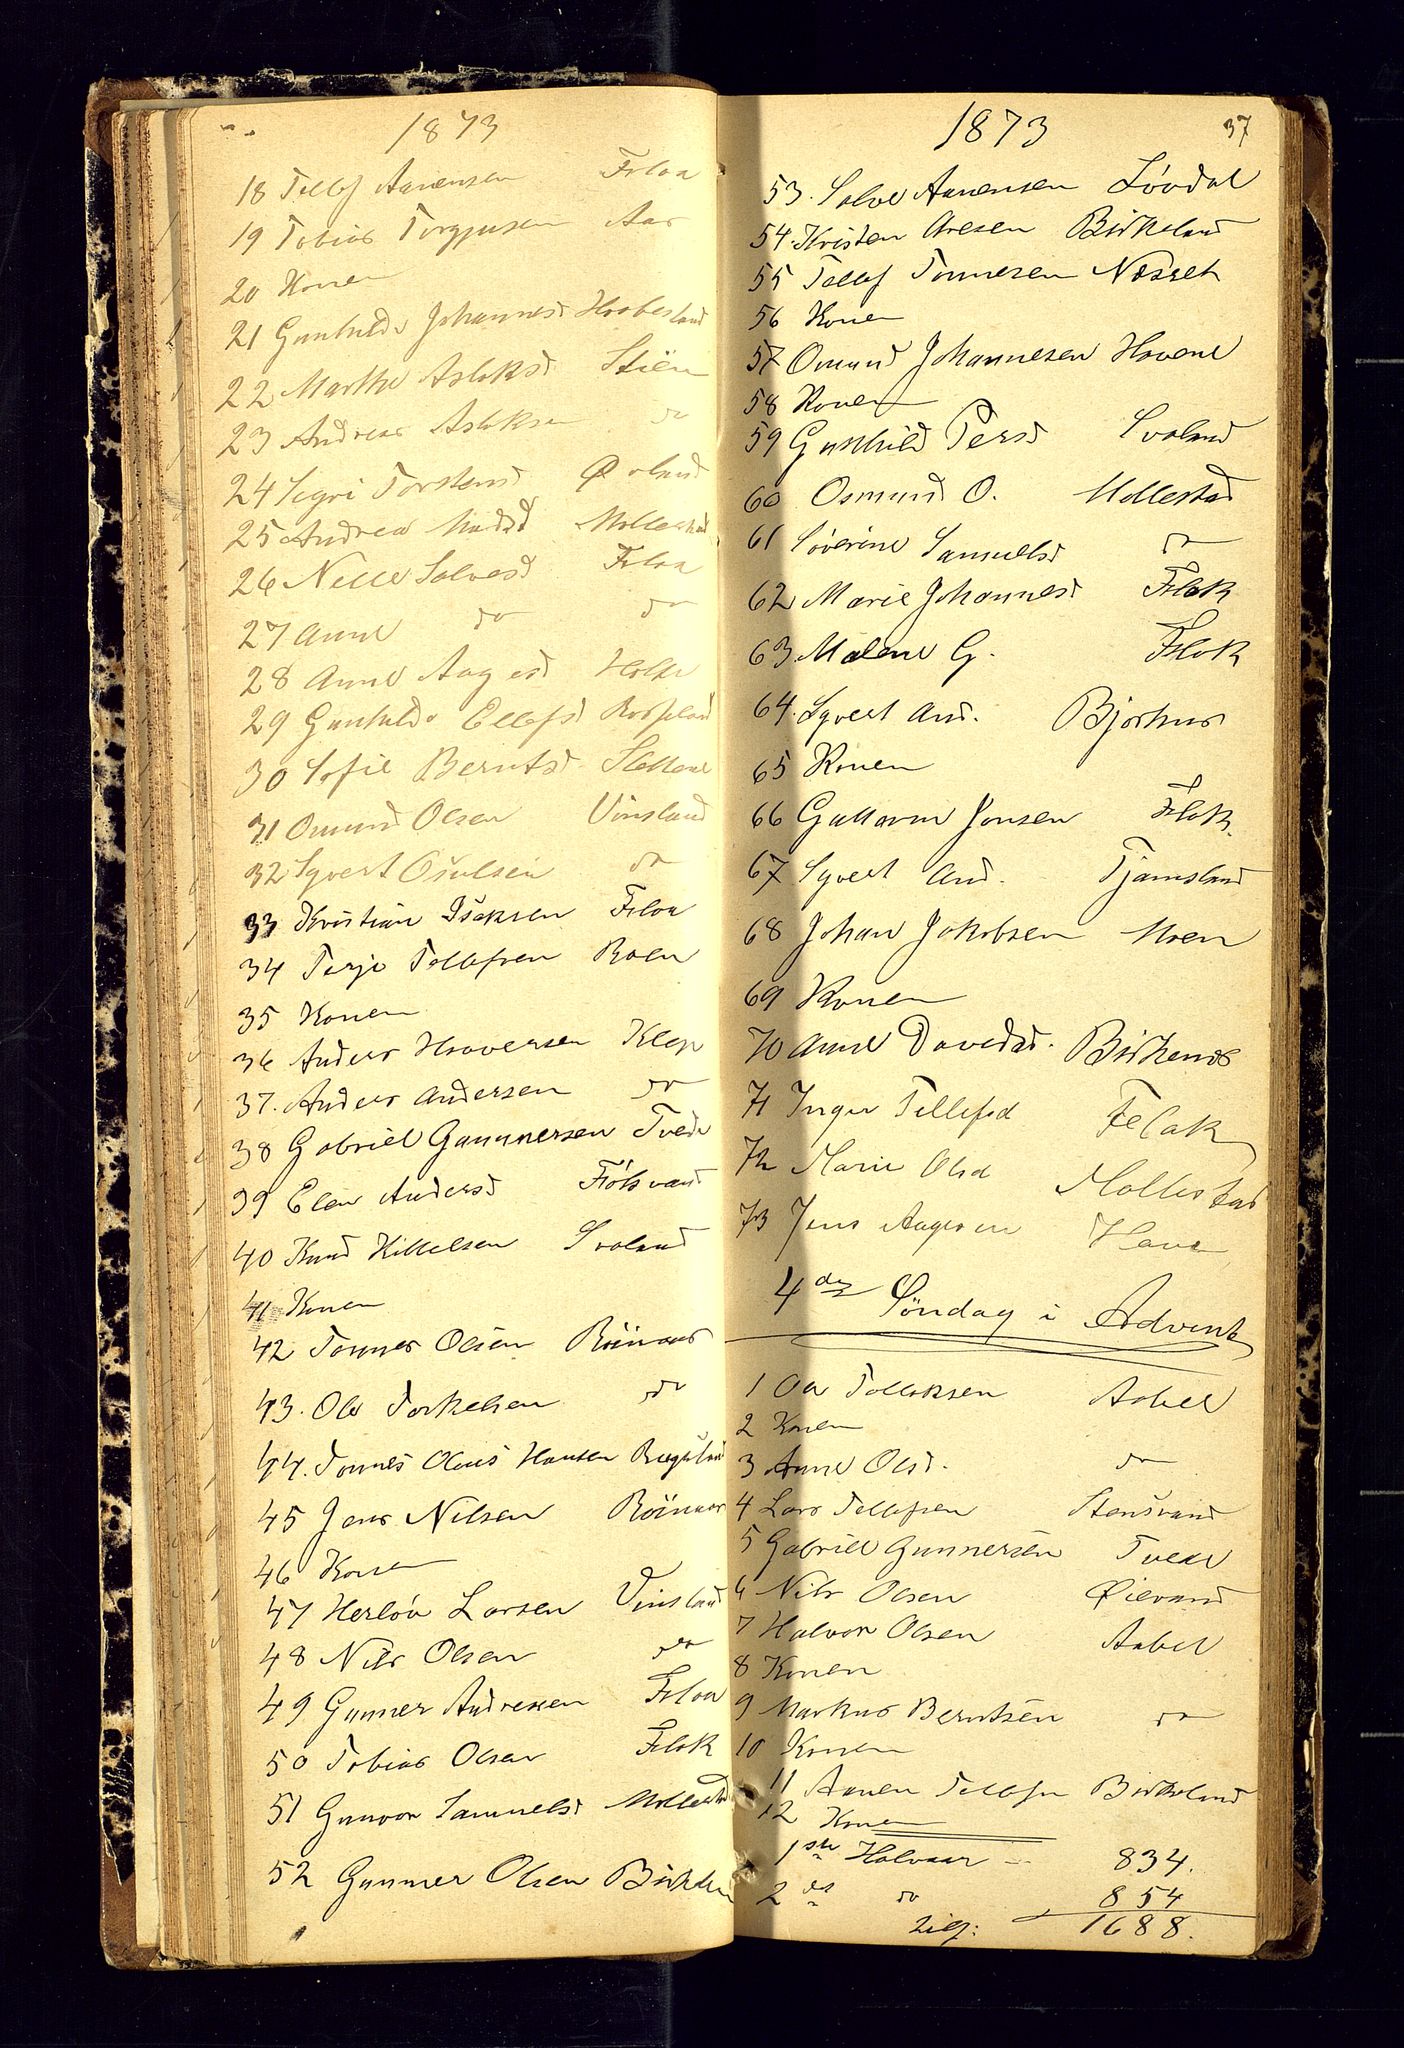 1873
18 Tellef Aanensen Feloa
19 Tobias Torgjusen Aas
20 Konen
21 Gunhild Johannesd Haabesland
22 Marthe Aslaksd Stien
23 Andreas Aslaksen do
24 Sigri Torstensd
25 Andrea Madsd Mollestad
26 Nelle Salvesd Feloa
27 Anne do do
28 Anne Aagesd Holte
29 Gunhild Ellefsd
30 Sofie Berntsd Slettene
31 Omund Olsen Vinsland
32 Syvert Osulsen do
33 Kristian Isaksen Feloa
34 Terje Tellefsen Roen
35 Konen
36 Anders Haaversen Klep
37. Anders Andersen do
38 Gabriel Gunnersen Tvede
39 Elen Andersd
40 Knud Kittelsen Svaland
41 Konen
42 Tønnes Olsen Röinaas
43. Ole Torkelsen do
44. Tønnes Olaus Hansen
45 Jens Nilsen Röinaas
46 Konen
47 Herløv Larsen Vinsland
48 Nils Olsen do
49 Gunner Andressen Feloa
50 Tobias Olsen Flak
51 Gunvor Samuelsd Mollestad
52 Gunner Olsen
1873 37
53. Salve Aanensen Løvdal
54. Kristen Aresen Birkeland
55 Tellef Tønnesen Nesset
56 Konen
57 Omund Johannesen Havene
58 Konen
59 Gunhild Persd Svaland
60 Osmund O. Mollestad
61 Søverine Samuelsd do
62 Marie Johannesd Flak
63 Malene G. Flak
64. Syvert And. Bjorhus
65 Konen
66 Guttorm Jensen Flak.
67 Syvert And. Tjamsland
68 Johan Jakobsen Moen
69 Konen
70 Anne Davidsd. Birkenes
71 Inger Tellefsd Felak
72 Marie Olsd Mollestad
73 Jens Aagesen Have
4de Söndag i Advent
1 Ole Tellefsen Aabel
2 Konen
3 Anne Olsd. do
4 Lars Tellefsen Stensvand
5 Gabriel Gunnersen Tvede
6 Nils Olsen Øievand
7 Halvor Olsen Aabel
8 Konen
9 Markus Berntsen do
10 Konen
11 Aanen Tellefsen Birkeland
12 Konen
1ste Halvaar - 834.
2de do 854
Tils: 1688.